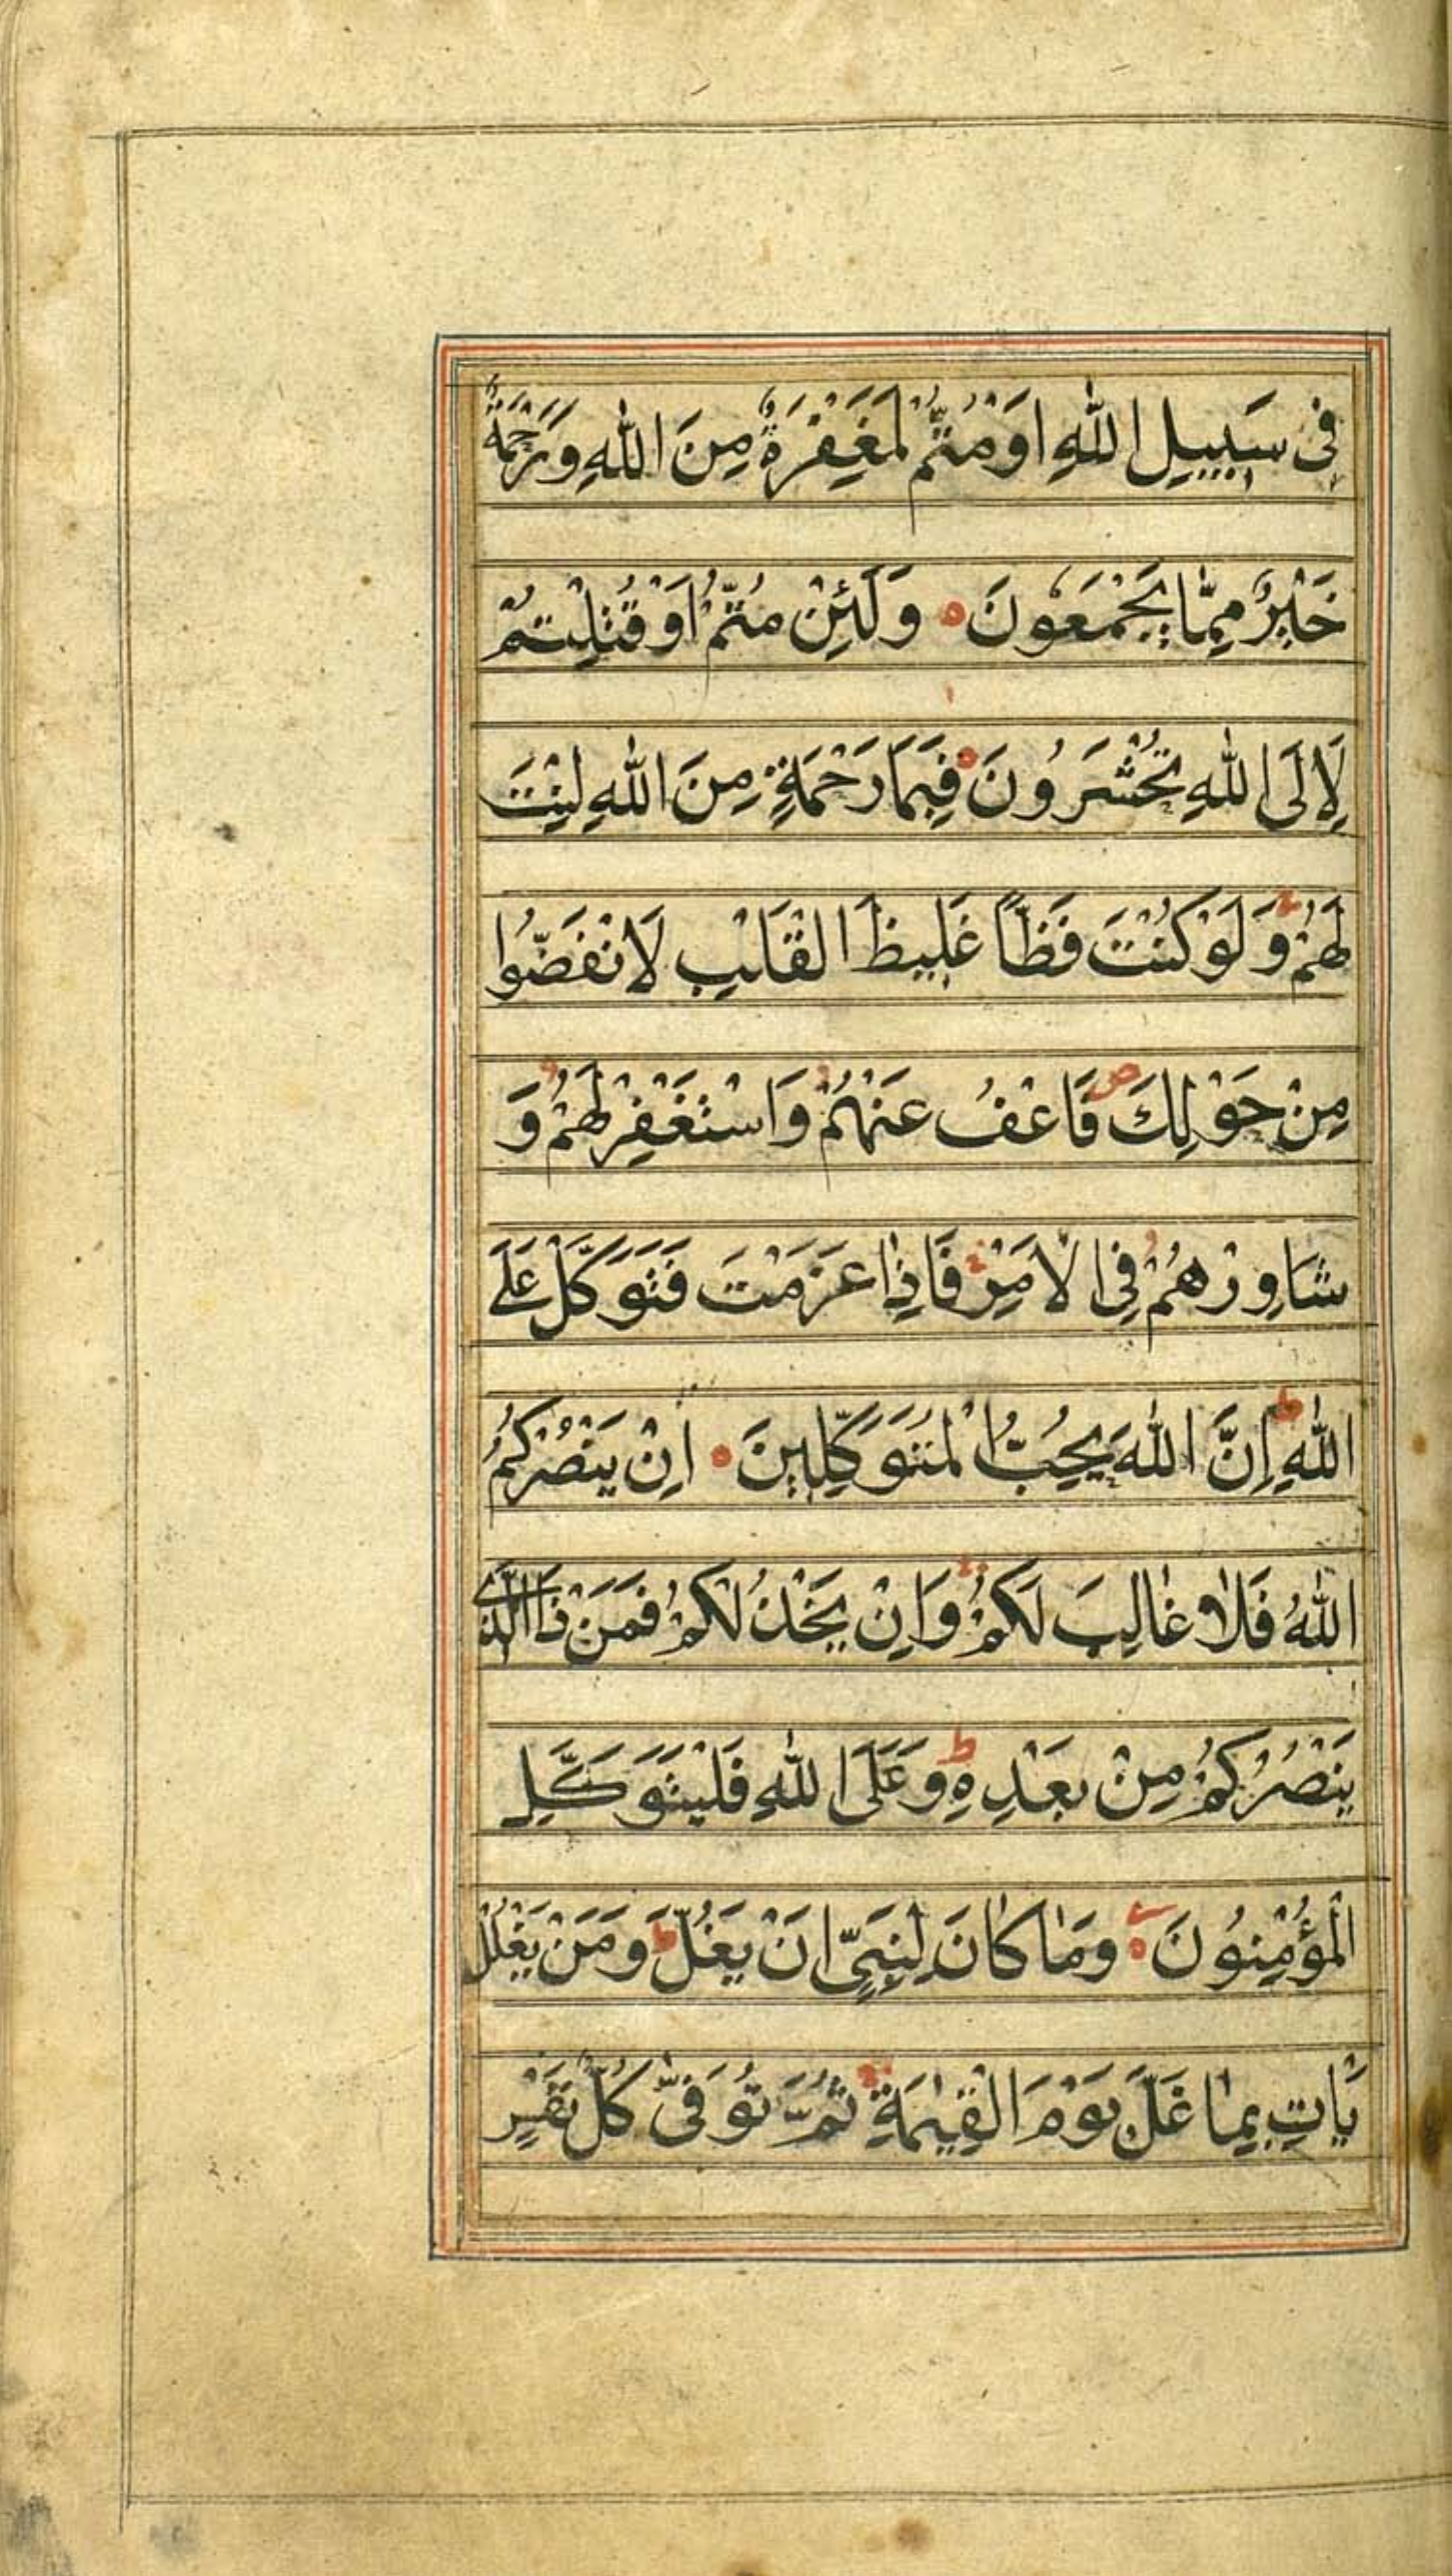 فِى سَبِيلِ اللّٰهِ اَوْ مُتُّمْ لَمَغْفِرَةٌ مِنَ اللّٰهِ وَرَحْمَةٌ
خَيْرٌ مِمَّا يَجْمَعُونَ ه وَلَئِنْ مُتُّمْ اَوْ قُتِلْتُمْ
لَاِلَى اللّٰهِ تُحْشَرُونَ ه فَبِمَا رَحْمَةٍ مِنَ اللّٰهِ لِنْتَ
لَهُمْ ج وَلَوْ كُنْتَ فَظًّا غَلِيظَ الْقَلْبِ لَانْفَضُّوا
مِنْ حَوْلِكَ ص فَاعْفُ عَنْهُمْ وَاسْتَغْفِرْ لَهُمْ وَ
شَاوِرْهُمْ فِى الْاَمْرِ ج فَاِذَا عَزَمْتَ فَتَوَكَّلْ عَلَى
اللّٰهِ ط اِنَّ اللّٰهَ يُحِبُّ الْمُتَوَكِّلِينَ ه اِنْ يَنْصُرْكُمُ
اللّٰهُ فَلَا غَالِبَ لَكُمْ ج وَاِنْ يَخْذُلْكُمْ فَمَنْ ذَا الَّذِى
يَنْصُرُكُمْ مِنْ بَعْدِهِ ط وَعَلَى اللّٰهِ فَلْيَتَوَكَّلِ
الْمُؤْمِنُونَ ه وَمَا كَانَ لِنَبِىٍّ اَنْ يَغُلَّ ط وَمَنْ يَغْلُلْ
يَاْتِ بِمَا غَلَّ يَوْمَ الْقِيٰمَةِ ج ثُمَّ تُوَفّٰى كُلُّ نَفْسٍ